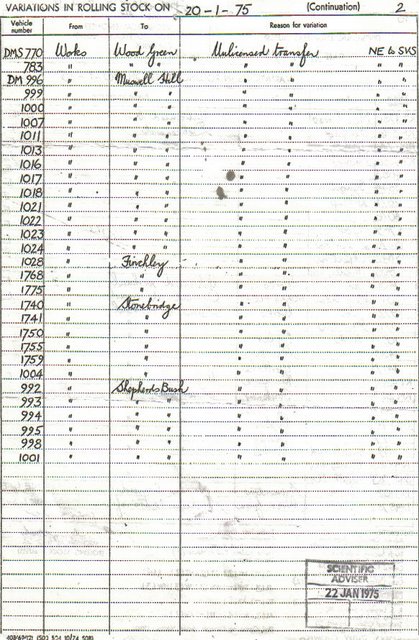 VARIATIONS IN ROLLING STOCK ON 20-1-75 (Continuation) 2
Vehicle number From To Reason for variation
DMS 770 Works Wood Green Unlicensed transfer NE to SVS
783 " " " " " " "
DM 996 " Muswell Hill " " " "
999 " " " " " " "
1000 " " " " " " "
1007 " " " " " " "
1011 " " " " " " "
1013 " " " " " " "
1016 " " " " " " "
1017 " " " " " " "
1018 " " " " " " "
1021 " " " " " " "
1022 " " " " " " "
1023 " " " " " " "
1024 " " " " " " "
1028 " Finchley " " " "
1768 " " " " " "
1775 " " " " " "
1740 " Stonebridge " " " "
1741 " " " " " "
1750 " " " " " "
1755 " " " " " "
1759 " " " " " "
1004 " " " " " "
992 " Shepherds Bush " " " "
993 " " " " " " "
994 " " " " " " "
995 " " " " " " "
998 " " " " " " "
1001 " " " " " " "
SCIENTIFIC
ADVISER
22 JAN 1975